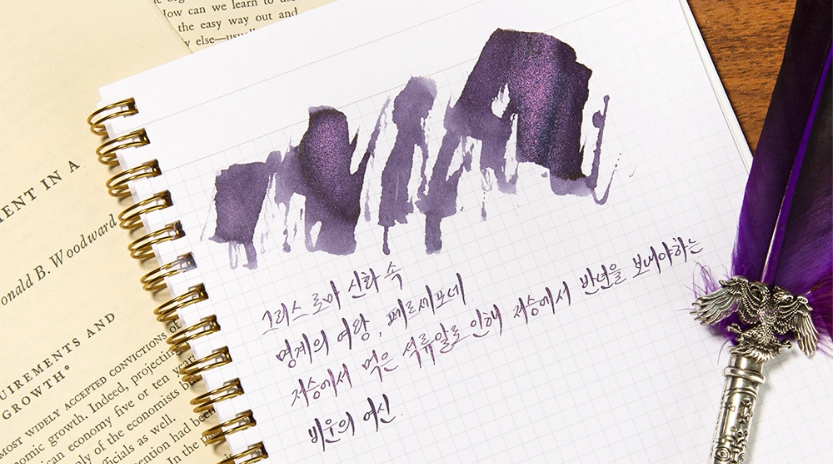 low can we learn to use
the easy way out and
w else—usu
ENT IN A
onald B. Woodward
UIREMENTS AND
GROWTH°
MOST WIDELY ACCEPTED CONVICTIONS OF
omic growth. Indeed, projecting
can economy five or ten years
ly of the economists b
cials as well.
ention had been
In the
그리스 로마 신화 속
명계의 여왕, 페르세포네
저승에서 먹은 석류알로 인해 저승에서 반년을 보내야하는
비운의 여신